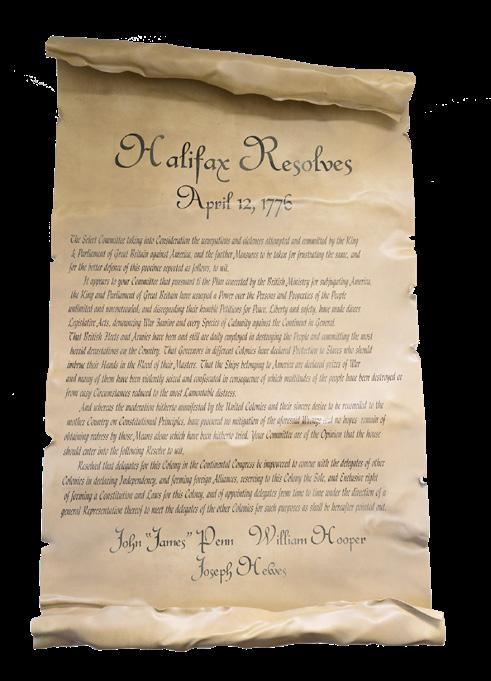 Halifax Resolves
April 12, 1776
The Select Committee taking into Consideration the usurpations and violences attempted and committed by the King
& Parliament of Great Britain against America, and the further Measures to be taken for frustrating the same, and
for the better defence of this province reported as follows, to wit,
It appears to your Committee that pursuant to the Plan concerted by the British Ministry for subjugating America,
the King and Parliament of Great Britain have usurped a Power over the Persons and Properties of the People
unlimited and uncontrouled; and disregarding their humble Petitions for Peace, Liberty and safety, have made divers
Legislative Acts, denouncing War Famine and every Species of Calamity against the Continent in General.
That British Fleets and Armies have been and still are daily employed in destroying the People and committing the most
horrid devastations on the Country. That Governors in different Colonies have declared Protection to Slaves who should
imbrue their Hands in the Blood of their Masters. That the Ships belonging to America are declared prizes of War
and many of them have been violently seized and confiscated in consequence of which multitudes of the people have been destroyed or
from easy Circumstances reduced to the most Lamentable distress.
And whereas the moderation hitherto manifested by the United Colonies and their sincere desire to be reconciled to the
mother Country on Constitutional Principles, have procured no mitigation of the aforesaid Wrongs and no hopes remain of
obtaining redress by those Means alone which have been hitherto tried, Your Committee are of the Opinion that the house
should enter into the following Resolve to wit,
Resolved that delegates for this Colony in the Continental Congress be impowered to concur with the delegates of other
Colonies in declaring Independency, and forming foreign Alliances, reserving to this Colony the Sole, and Exclusive right
of forming a Constitution and Laws for this Colony, and of appointing delegates from time to time under the direction of a
general Representation thereof to meet the delegates of the other Colonies for such purposes as shall be hereafter pointed out.
John "James" Penn William Hooper
Joseph Hewes